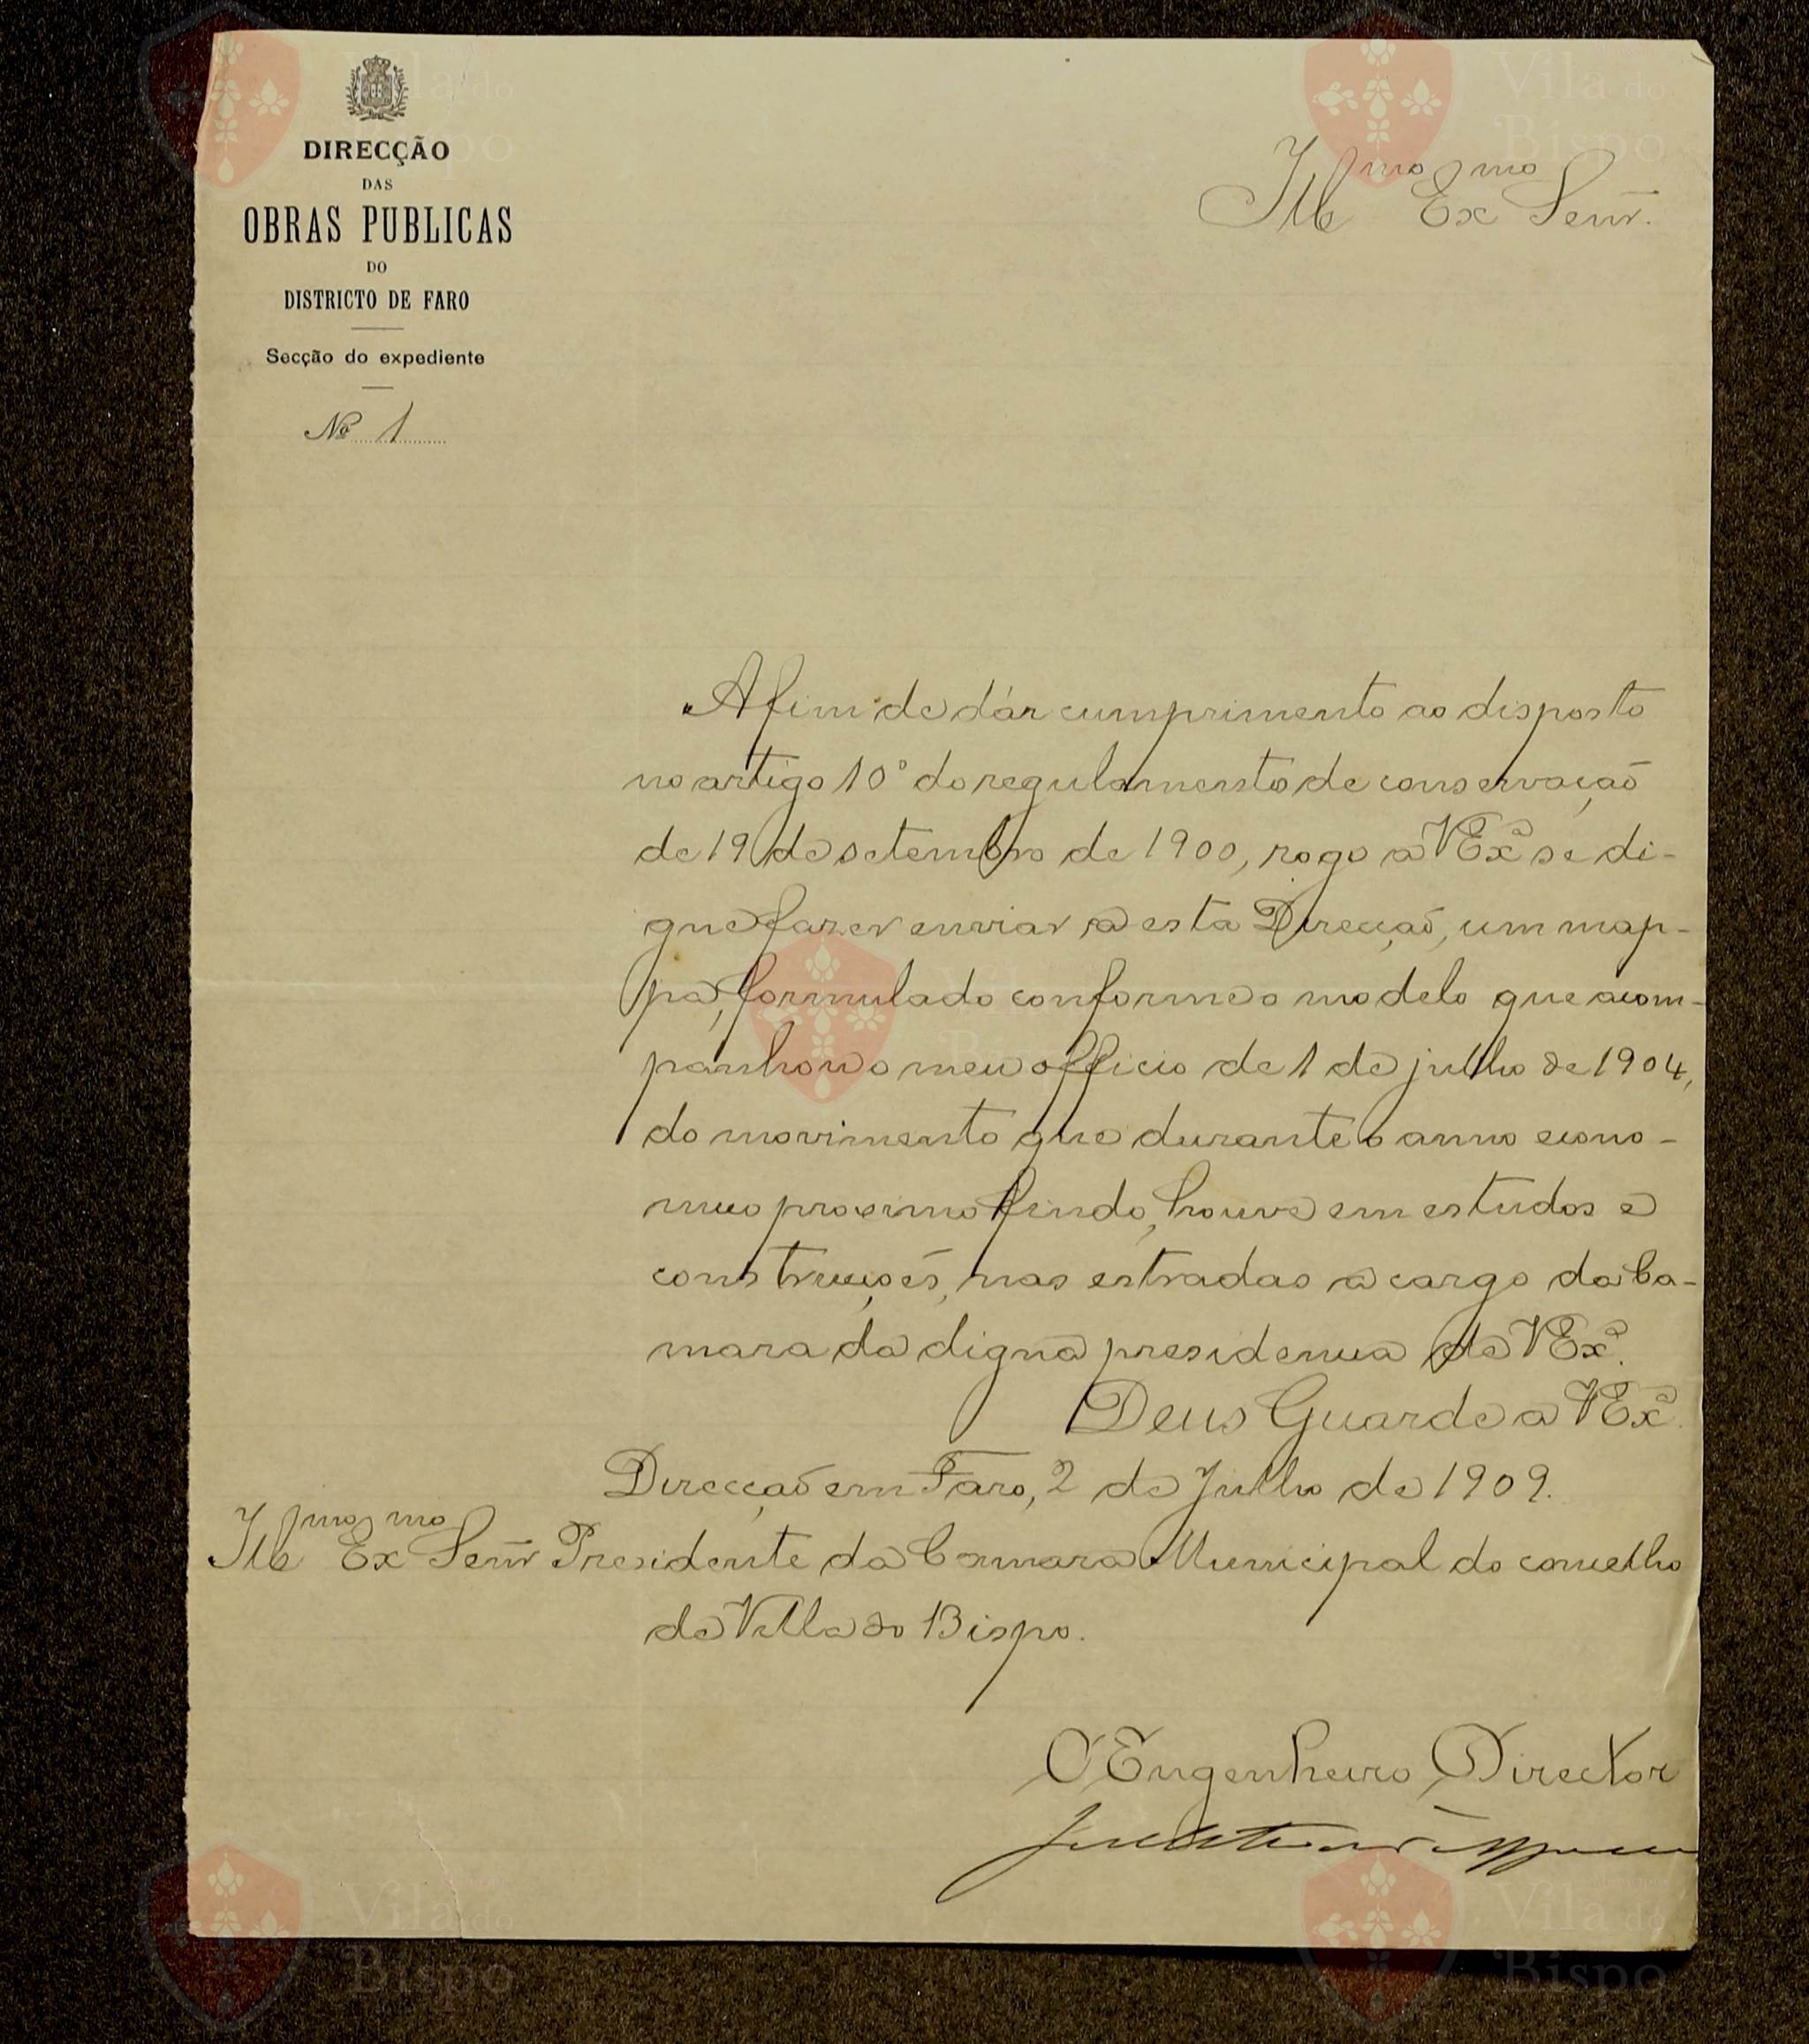 DIRECÇÃO
DAS
OBRAS PUBLICAS
DO
DISTRICTO DE FARO
Secção do expediente
Nº 1
Illmo Exmo Senr.
Afim de dár cumprimento ao disposto
no artigo 10º do regulamento de conservação
de 19 de setembro de 1900, rogo a VExª se di-
gne fazer enviar a esta Direcção, um map-
pa, formulado conforme o modelo que acom-
panhou o meu officio de 1 de julho de 1904,
do movimento que durante o anno econo-
mico proximo findo, houve em estudos e
construcções, nas estradas a cargo da Ca-
mara da digna presidencia de VExª.
Deus Guarde a VExª.
Direcção em Faro, 2 de Julho de 1909.
Illmo Exmo Senr Presidente da Camara Municipal do concelho
de Villa do Bispo.
O Engenheiro Director
Vila do
Bispo
Vila do
Bispo
Vila do
Bispo
Vila do
Bispo
Vila do
Bispo